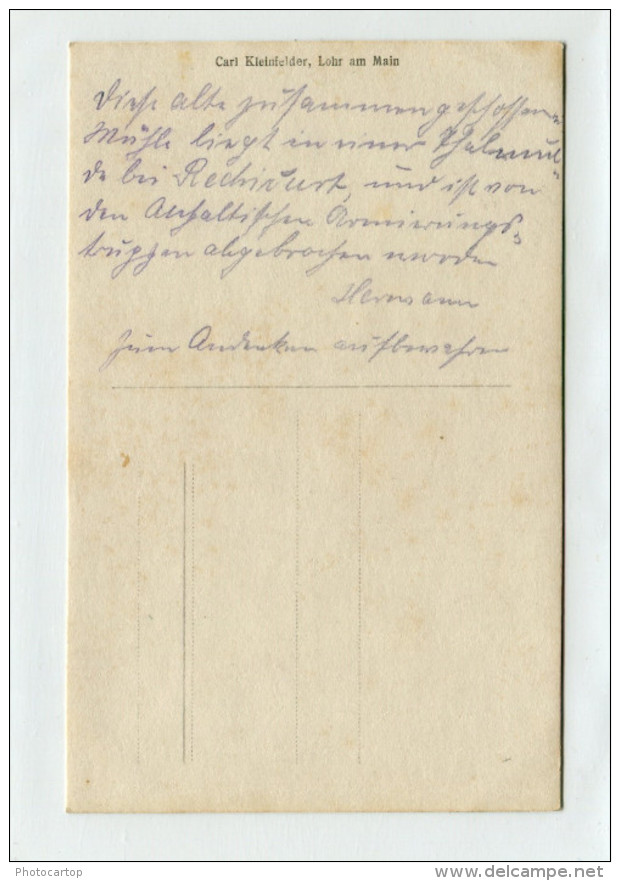 Carl Kleinfelder, Lohr am Main
Diese alte zusammengeschossene
Mühle liegt in einer Thalmul-
de bei Rechicourt, und ist von
den Anhaltischen Armierungs-
truppen abgebrochen worden
Hermann
Zum Andenken aufbewahren
Photocartop
delcampe.net